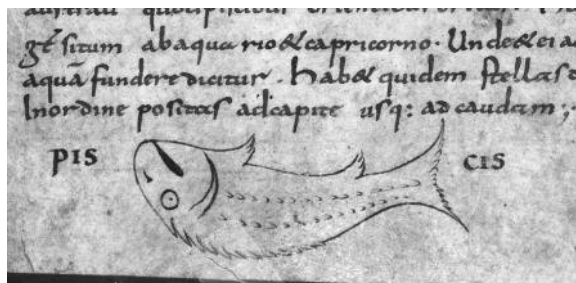 gē situm ab aquario & capricorno. Unde & ei a
aquā fundere dicitur. hab& quidem stellas
In ordine positas ad capite usq: ad caudam;
PIS CIS